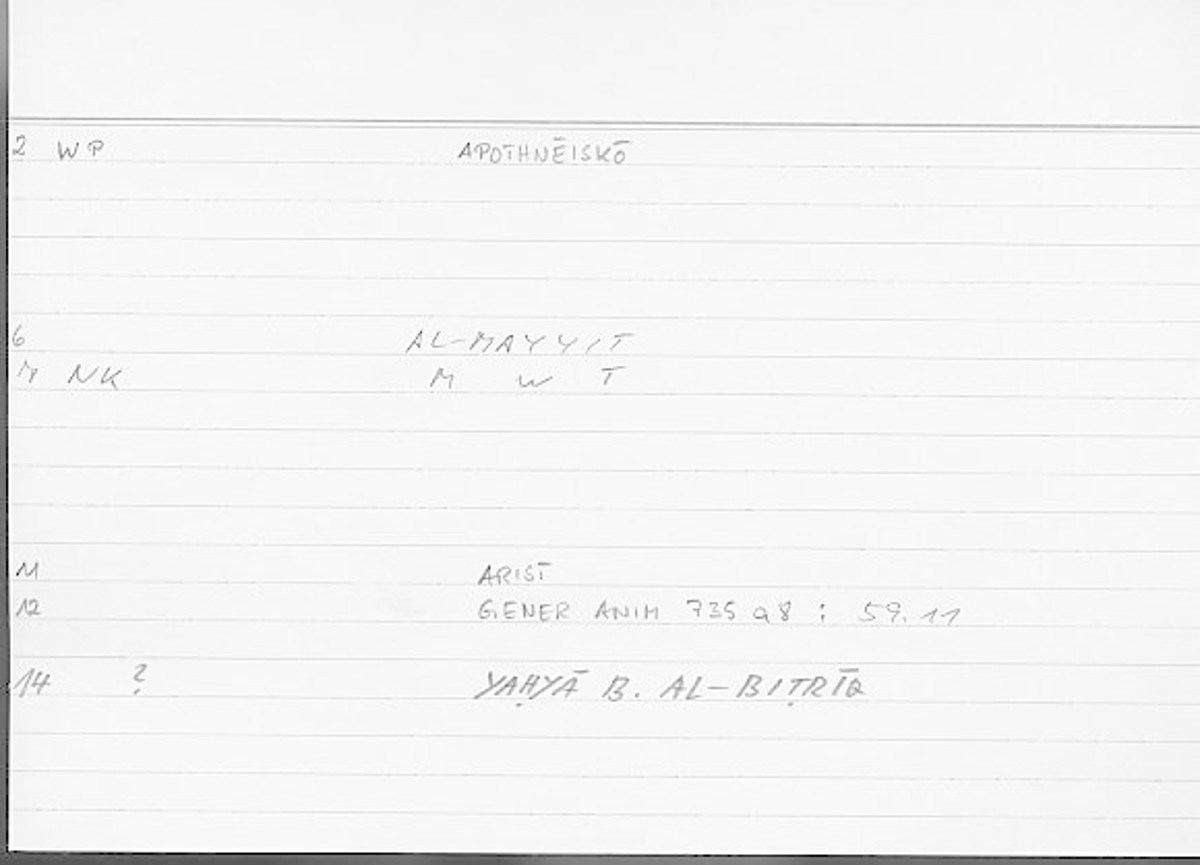 2 WP APOTHNĒISKŌ
6 AL-MAYYIT
NK M W T
11 ARIST
12 GENER ANIM 735 a8 : 59.11
14 ? YAḤYĀ B. AL-BIṬRĪQ